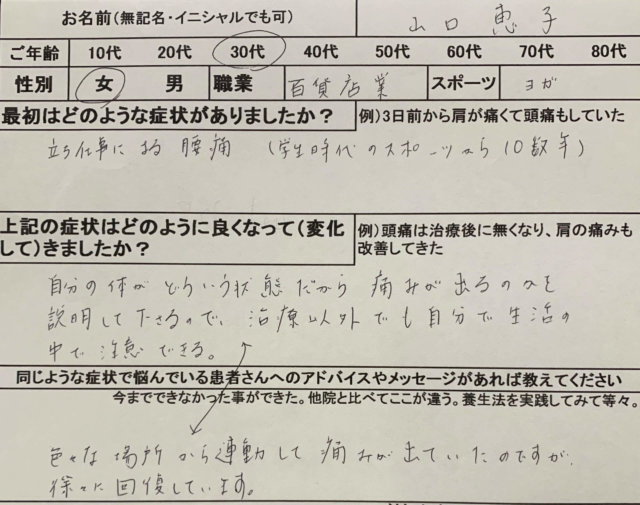 お名前(無記名・イニシャルでも可) 山口 恵子
ご年齢 10代 20代 30代 40代 50代 60代 70代 80代
性別 女 男 職業 百貨店業 スポーツ ヨガ
最初はどのような症状がありましたか? 例)3日前から肩が痛くて頭痛もしていた
立ち仕事による腰痛 (学生時代のスポーツから10数年)
上記の症状はどのように良くなって(変化 例)頭痛は治療後に無くなり、肩の痛みも
して)きましたか? 改善してきた
自分の体がどういう状態だから痛みが出るのかを
説明して下さるので、治療以外でも自分で生活の
中で注意できる。
同じような症状で悩んでいる患者さんへのアドバイスやメッセージがあれば教えてください
今までできなかった事ができた。他院と比べてここが違う。養生法を実践してみて等々。
色々な場所から連動して痛みが出ていたのですが、
徐々に回復しています。